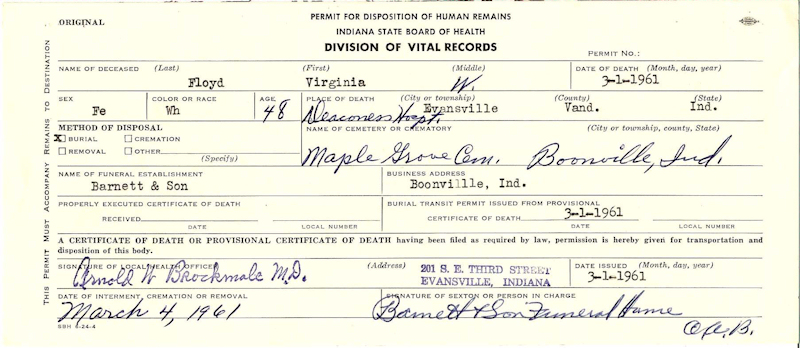 ORIGINAL
PERMIT FOR DISPOSITION OF HUMAN REMAINS
INDIANA STATE BOARD OF HEALTH
DIVISION OF VITAL RECORDS
PERMIT NO.:
THIS PERMIT MUST ACCOMPANY REMAINS TO DESTINATION
NAME OF DECEASED (Last) (First) (Middle) DATE OF DEATH (Month, day, year)
Floyd Virginia W. 3-1-1961
SEX COLOR OR RACE AGE PLACE OF DEATH (City or township) (County) (State)
Fe Wh 48 Deaconess Hospt. Evansville Vand. Ind.
METHOD OF DISPOSAL NAME OF CEMETERY OR CREMATORY (City or township, county, State)
X BURIAL CREMATION
REMOVAL OTHER
(Specify)
Maple Grove Cem. Boonville, Ind.
NAME OF FUNERAL ESTABLISHMENT BUSINESS ADDRESS
Barnett & Son Boonville, Ind.
PROPERLY EXECUTED CERTIFICATE OF DEATH BURIAL TRANSIT PERMIT ISSUED FROM PROVISIONAL
RECEIVED CERTIFICATE OF DEATH 3-1-1961
DATE LOCAL NUMBER DATE LOCAL NUMBER
A CERTIFICATE OF DEATH OR PROVISIONAL CERTIFICATE OF DEATH having been filed as required by law, permission is hereby given for transportation and
disposition of this body.
SIGNATURE OF LOCAL HEALTH OFFICER (Address) 201 S. E. THIRD STREET DATE ISSUED (Month, day, year)
Arnold W Brockmole M.D. EVANSVILLE, INDIANA 3-1-1961
DATE OF INTERMENT, CREMATION OR REMOVAL SIGNATURE OF SEXTON OR PERSON IN CHARGE
March 4, 1961 Barnett & Son Funeral Home
SBH 6-24-4